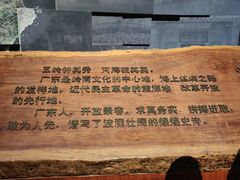 五岭钟英秀，河海毓英英。
广东是岭南文化的中心地，海上丝绸之路
的发祥地，近代民主革命的策源地，改革开放
的先行地。
广东人，开放兼容，求真务实，
敢为人先，谱写了波澜壮阔的煌煌史诗。